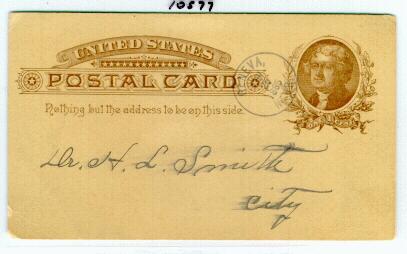 10577
UNITED STATES
POSTAL CARD
Nothing but the address to be on this side.
Dr. H. L. Smith
City